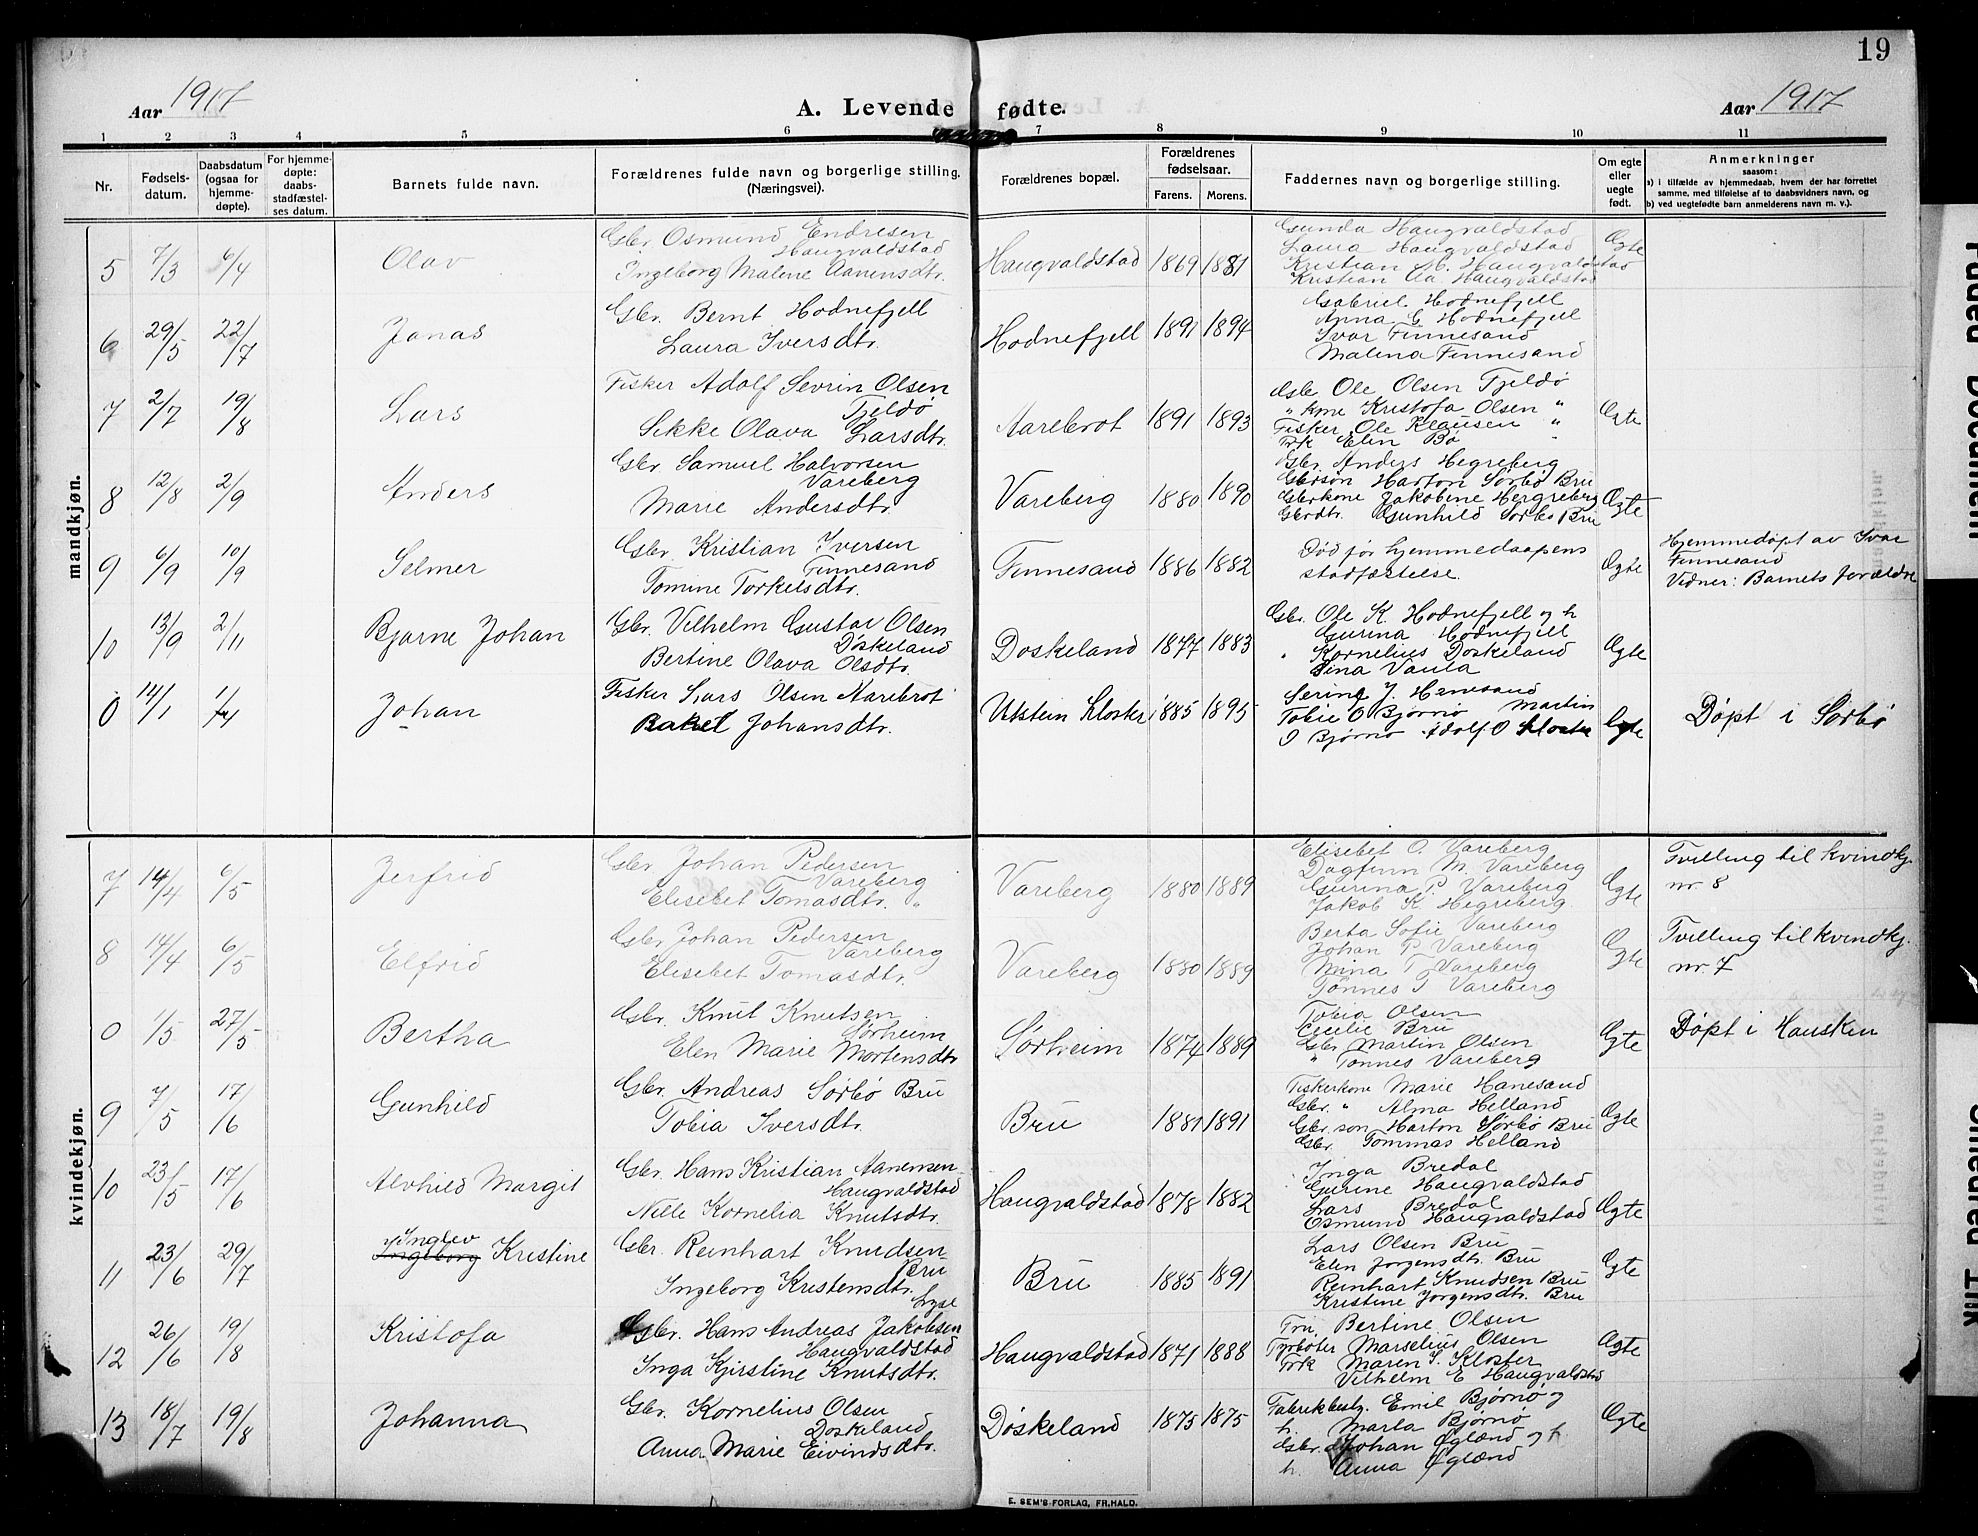 19
Aar 1917
A. Levende fødte.
Aar 1917
1 2 3 4 5 6 7 8 9 10 11
Nr.
Fødsels-
datum.
Daabsdatum
(ogsaa for
hjemme-
døpte).
For hjemme-
døpte:
daabs-
stadfæstel-
ses datum.
Barnets fulde navn.
Forældrenes fulde navn og borgerlige stilling.
(Næringsvei).
Forældrenes bopæl.
Forældrenes
fødselsaar.
Farens. Morens.
Faddernes navn og borgerlige stilling.
Om egte
eller
uegte
født.
Anmerkninger
saasom:
a) i tilfælde av hjemmedaab, hvem der har forrettet
samme, med tilføielse af to daabsvidners navn, og
b) ved uegtefødte barn anmelderens navn m. v.).
mandkjøn.
5 7/3 6/4 Olav
Gbr. Osmund Endresen
Haugvaldstad
Ingeborg Malene Aanensdtr.
Haugvaldstad 1869 1881
Gunda Haugvaldstad
Laura Haugvaldstad
Kristian M. Haugvaldstad
Kristian Aa. Haugvaldstad
Egte
6 29/5 22/7 Jonas
Gbr. Bernt Hodnefjell
Laura Iversdtr.
Hodnefjell 1891 1894
Gabriel Hodnefjell
Anna G Hodnefjell
Ivar Finnesand
Malena Finnesand
7 2/7 19/8 Lars
Fisker Adolf Sevrin Olsen
Fjeldø
Sikke Olava Larsdtr.
Aarebrot 1891 1893
Gbr. Ole Olsen Fjeldø
" kone Kristofa Olsen "
Fisker Ole Klausen "
Frk Elin Bø
Ægte
8 12/8 2/9 Anders
Gbr. Samuel Halvorsen
Vareberg
Marie Andersdtr.
Vareberg 1880 1890
Gbr. Anders Hegreberg
Gbrsøn Harton Sørbø Bru
Gbrkone Jakobine Hergreberg
Gbrdtr. Gunhild Sørbø Bru
Ægte
9 6/9 10/9 Selmer
Gbr. Kristian Iversen
Finnesand
Tomine Torkelsdtr.
Finnesand 1886 1882
Død før hjemmedaapens
stadfæstelse.
Ægte
Hjemmedøpt av Ivar
Finnesand
Vidner: Barnets forældre
10 13/9 2/11 Bjarne Johan
Gbr. Vilhelm Gustav Olsen
Døskeland
Bertine Olava Olsdtr.
Doskeland 1877 1883
Gbr. Ole K. Hodnefjell og h
Gurina Hodnefjell
" Kornelius Doskeland
Dina Vaula
Ægte
0 14/1 1/4 Johan
Fisker Lars Olsen Aarebrot
Rakel Johansdtr.
Utstein Kloster 1885 1895
Tobie O Bjørnø Martin
O Bjørnø Adolf O Kloster
Egte
Døpt i Sørbø
kvindekjøn.
7 14/4 6/5 Jerfrid
Gbr. Johan Pedersen
Vareberg
Elisebet Tomasdtr. "
Vareberg 1880 1889
Elisebet O. Vareberg
Dagfinn M. Vareberg
Gurina P Vareberg
Jakob K Hegreberg.
Egte
Tvilling til kvindkj.
nr. 8
8 14/4 6/5 Elfrid
Gbr. Johan Pedersen
Vareberg
Elisebet Tomasdtr.
Vareberg 1880 1889
Berta Sofie Vareberg
Johan P. Vareberg
Mina T. Vareberg
Tønnes T Vareberg
Egte
Tvilling til kvindkj.
nr. 7
0 1/5 27/5 Bertha
Gbr. Knut Knutsen
Sørheim
Elen Marie Mortensdtr
Sørheim 1874 1889
Tobia Olsen
Cecilie Bru
Gbr Martin Olsen
" Tønnes Vareberg
Egte
Døpt i Hausken
9 7/5 17/6 Gunhild
Gbr. Andreas Sørbø Bru
Tobia Iversdtr.
Bru 1881 1891
Fiskerkone Marie Hanesand
Gbr. " Alma Helland
Gbr. søn Harton Sørbø Bru
Gbr. Tommas Helland
Ægte
10 23/5 17/6 Alvhild Margit
Gbr. Hans Kristian Aanensen
Haugvaldstad
Nille Kornelia Knutsdtr.
Haugvaldstad 1878 1882
Inga Bredal
Gurine Haugvaldstad
Lars Bredal
Osmund Haugvaldstad
Ægte
11 23/6 29/7
Ingeborg Kristine
Gbr. Reinhart Knudsen
Bru
Ingeborg Kristensdtr.
Bru 1885 1891
Lars Olsen Bru
Elen Jørgensdtr. Bru
Reinhart Knudsen Bru
Kristine Jørgensdtr. Bru
Egte
12 26/6 19/8 Kristofa
Lyse
Gbr. Hans Andreas Jakobsen
Haugvaldstad
Inga Kjirstine Knutsdtr.
Haugvaldstad 1871 1888
Fru Bertine Olsen
Fyrbøter Marselius Olsen
Frk Maren I. Kloster
Vilhelm E Haugvaldstad
Ægte
13 18/7 19/8 Johanna
Gbr. Kornelius Olsen
Doskeland
Anna Marie Eivindsdtr.
Døskeland 1875 1875
Fabrikbest. Emil Bjørnø og
h. Marta Bjørnø
Gbr. Johan Øglænd og h.
h. Anna Øglænd
Ægte
E. SEM'S FORLAG, FR.HALD.
Faded Document